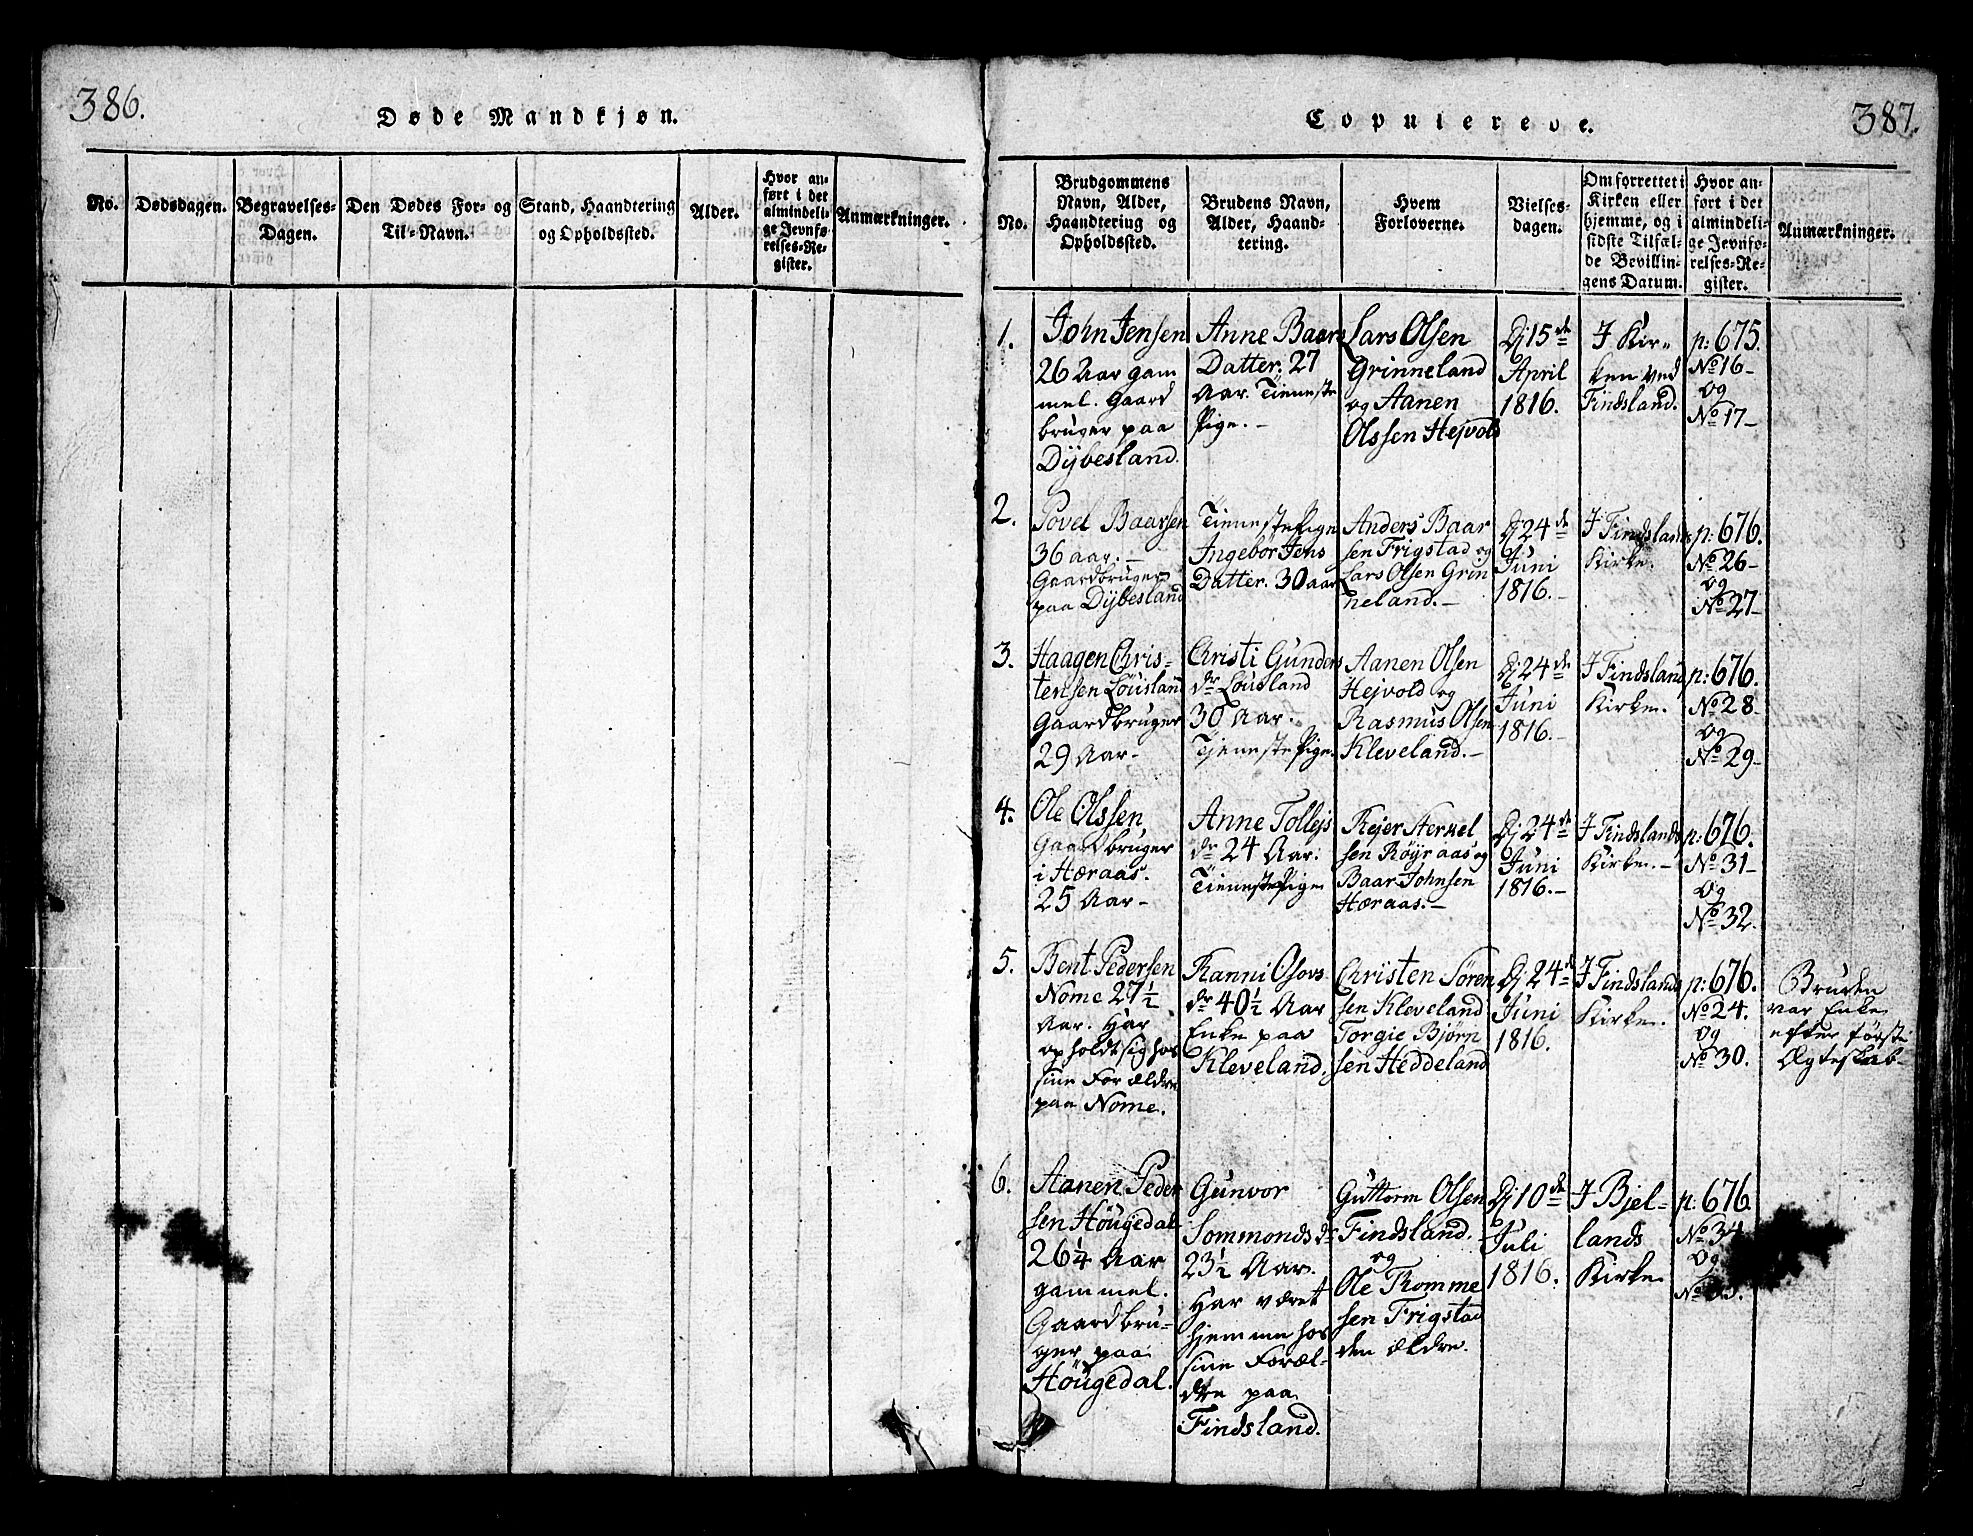 386.
Døde Mandkjøn.
No.
Dødsdagen.
Begravelses-
Dagen.
Den Dødes For- og
Til-Navn.
Stand, Haandtering
og Opholdssted.
Alder.
Hvor an-
ført i det
almindeli-
ge Jevnfø-
relses-Re-
gister.
Anmærkninger.
Copulerede.
387.
No.
Brudgommens
Navn, Alder,
Haandtering og
Opholdssted.
Brudens Navn,
Alder, Haand-
tering.
Hvem
Forloverne.
Vielses-
dagen.
Om forrettet i
Kirken eller
hjemme, og i
sidste Tilfæl-
de Bevillin-
gens Datum.
Hvor an-
ført i det
almindeli-
ge Jevnfø-
relses-Re-
gister.
Anmærkninger.
1.
John Jensen
26 Aar gam
mel. Gaard
bruger paa
Dÿbesland.
Anne Baars
Datter. 27
Aar. Tieneste
Pige. -
Lars Olsen
Grinneland
og Aanen
Olssen Hejvold
Dj 15de
April
1816.
I Kir-
ken ved
Findsland.
p: 675.
No 16-
og
No 17-
2.
Povel Baarsen
36 aar. -
Gaardbruger
paa Dÿbesland
TienestePige
Ingebor Jens
Datter. 30 aar
Anders Baar
sen Frigstad og
Lars Olsen Grin
neland. -
Dj 24de
Juni
1816. -
I Findslands
Kirke.
p: 676.
No 26-
og
No 27-
3.
Haagen Chris-
tensen Löusland
Gaardbruger
29 Aar-
Christi Gunders
dr Lousland
30 Aar.
TjenestePige
Aanen Olsen
Hejvold og
Rasmus Olsen
Kleveland. -
Dj 24de
Juni
1816. -
I Findslands
Kirke.
p: 676.
No 28-
og
No 29-
4.
Ole Olssen,
Gaardbruger
i Hæraas.
25 Aar-
Anne Tollejs
dr 24 Aar.
TienestePige
Rejer Terkel
sen Röÿraas og
Baar Johnsen
Hæraas. -
Dj 24de
Juni
1816. -
I Findslands
Kirke. -
p: 676.
No 31-
og
No 32.
5.
Bent Pedersen
Nome 27½
Aar. Har
opholdt sig hos
sine Forældre
paa Nome.
Ranni Osovs
dr 40½ Aar
Enke paa
Kleveland.
Christen Sören
sen Kleveland
Torgie Bjørn
sen Heddeland
Dj 24de
Juni
1816.
I Findslands
Kirke.
p: 676.
No 24.
og
No 30.
Bruden
var Enke
efter første
Ægteskab-
6.
Aanen Peder
sen Höugedal
26¼ Aar
gammel.
Gaardbru-
ger paa
Höugedal.
Gunvor
Sommonds dr
23½ Aar.
Har været
hjemme hos
sine Foræl-
dre paa
Findsland.
Guttorm Olsen
Findsland.
og
Ole Romme
sen Frigstad
den ældre.
Dj 10de
Juli
1816.
I Bjel-
lands
Kirke
p: 676
No 34
og
No